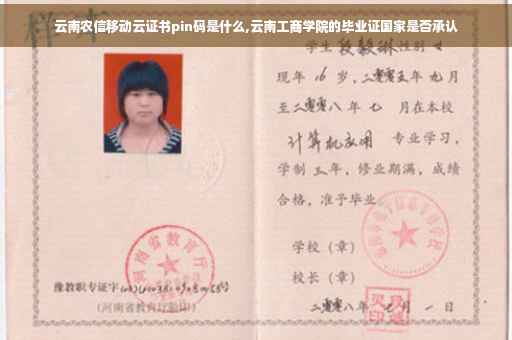 云南农信移动云证书pin码是什么,云南工商学院的毕业证国家是否承认
学生 段毅琳 性别 女
现年 16 岁,二零零五年 九月
至二零零八年 七 月在本校
计算机应用 专业学习,
学制 三年,修业期满,成绩
合格,准予毕业。
学校(章)
校长(章)
二零零八年 七 月 一 日
河南省教育厅
豫教职专证字
(河南省教育厅验印)